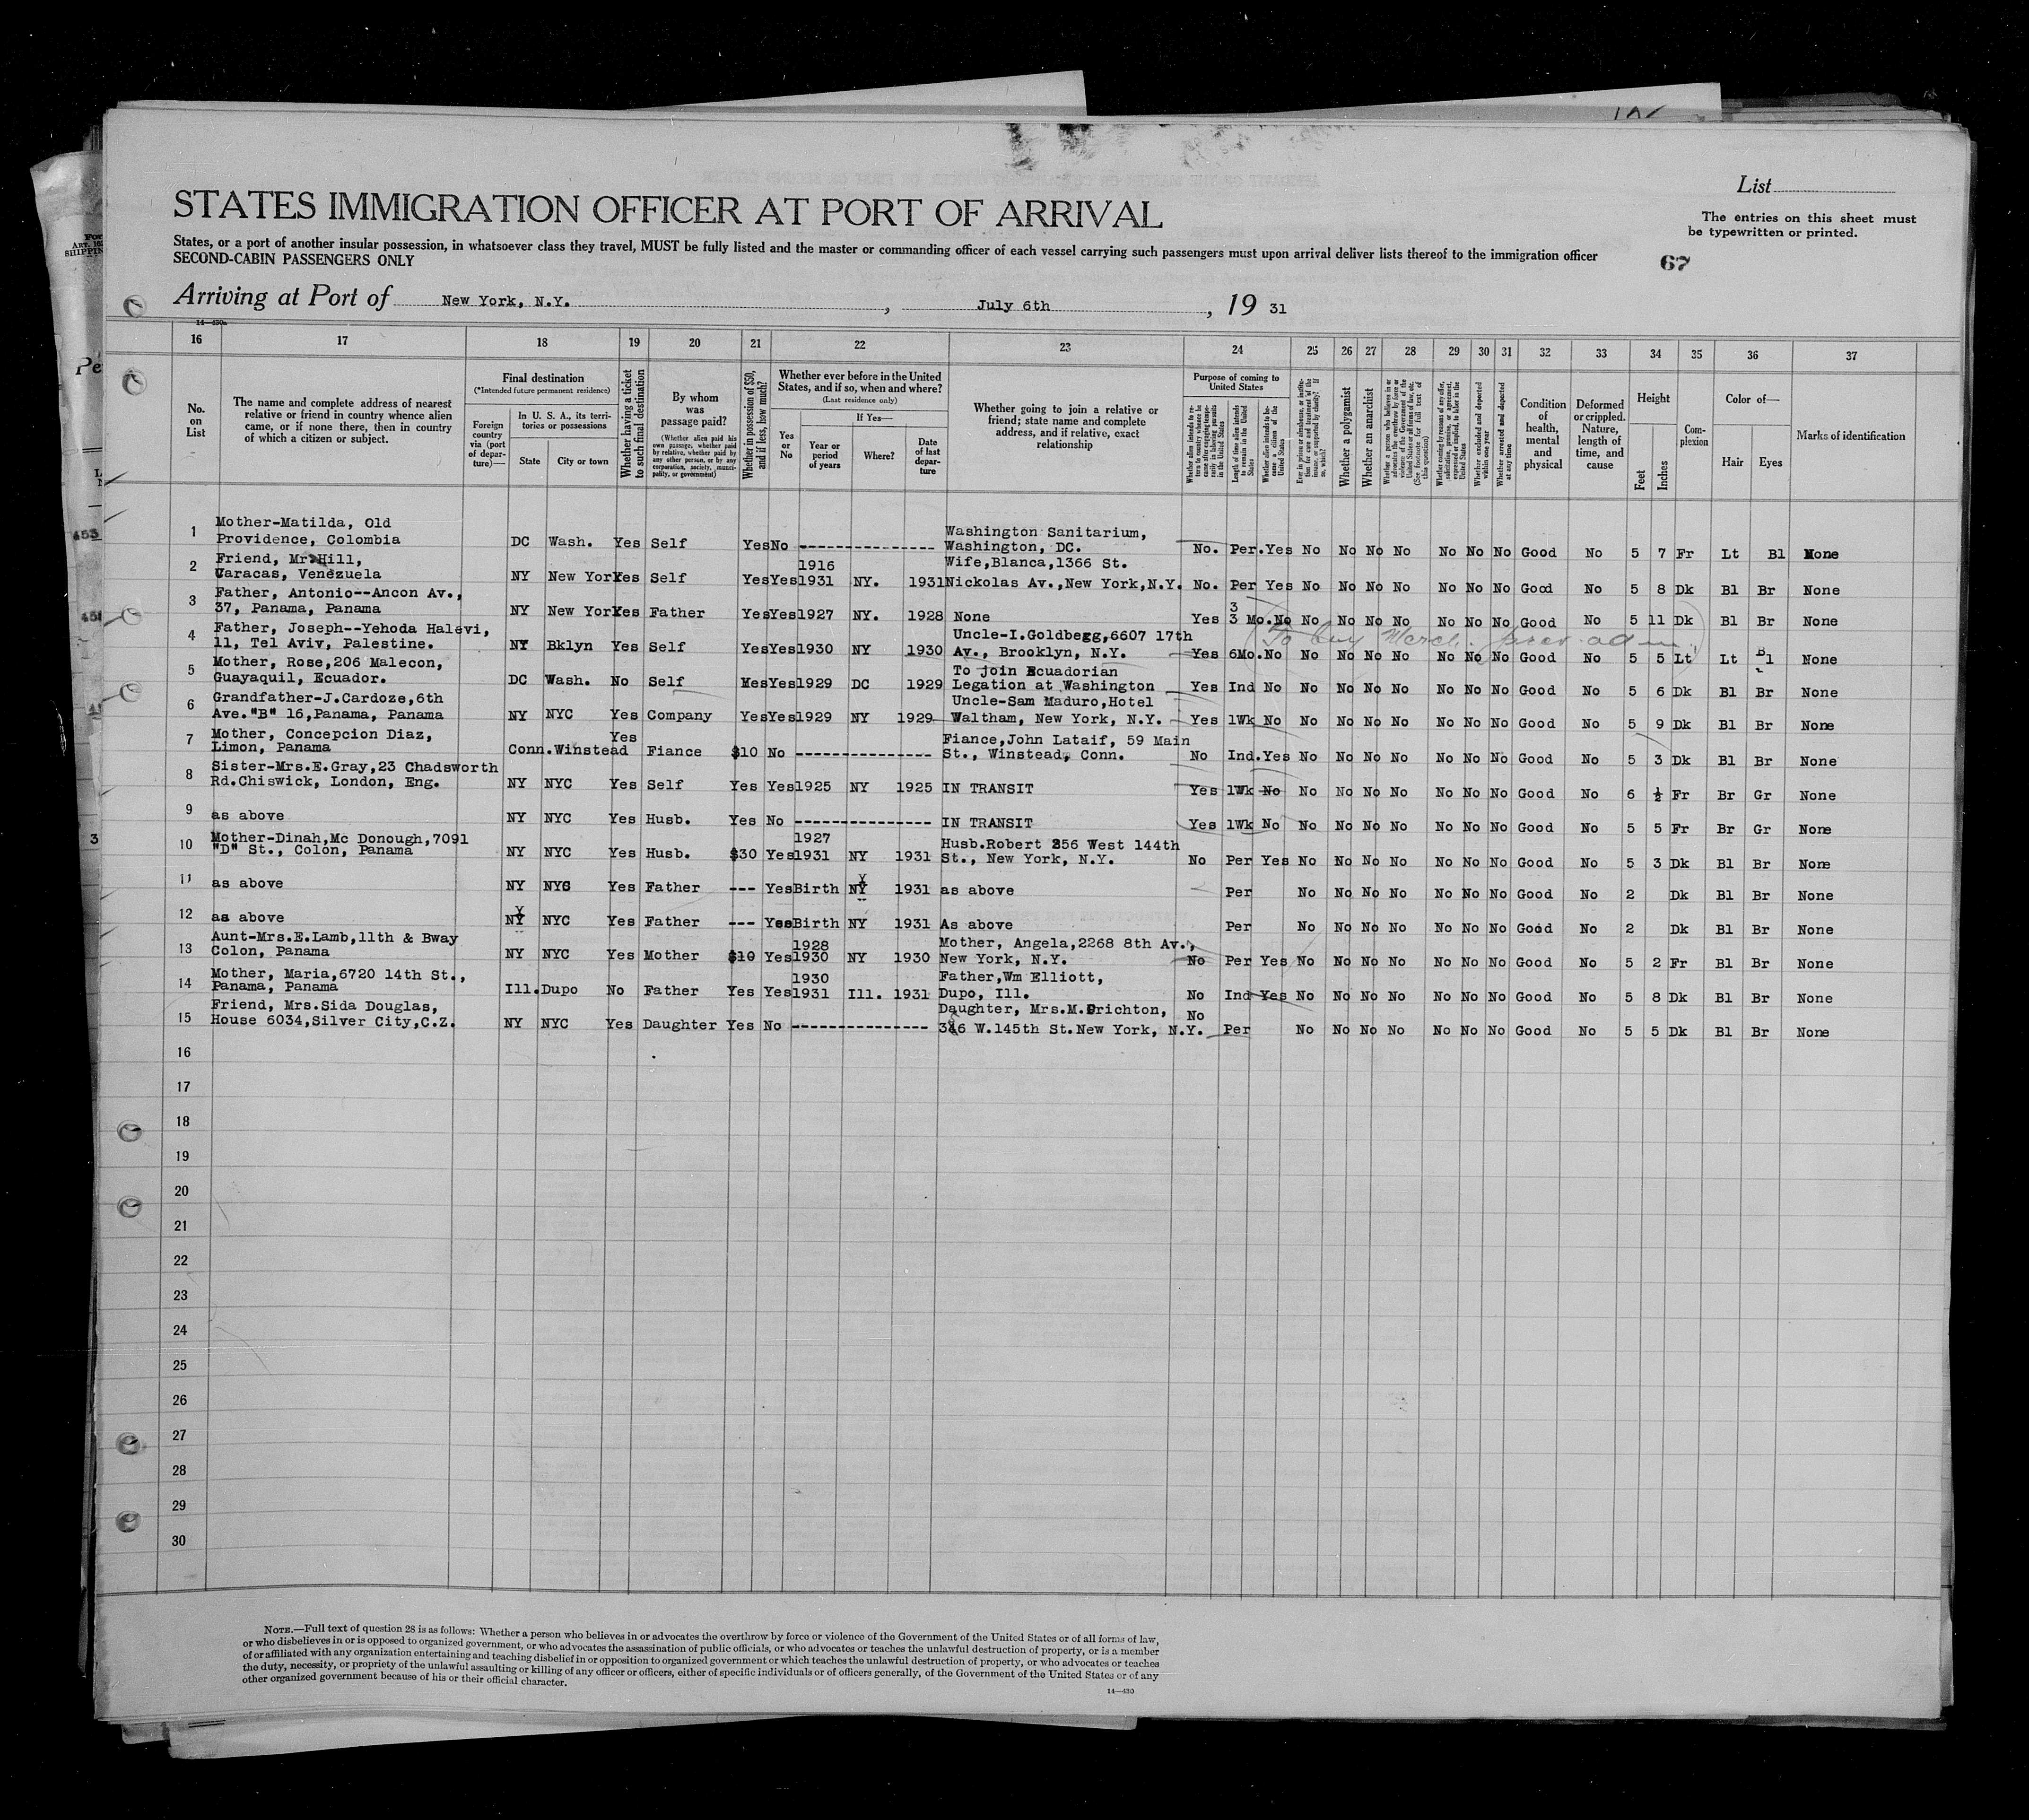 List
STATES IMMIGRATION OFFICER AT PORT OF ARRIVAL
The entries on this sheet must
be typewritten or printed.
States, or a port of another insular possession, in whatsoever class they travel, MUST be fully listed and the master or commanding officer of each vessel carrying such passengers must upon arrival deliver lists thereof to the immigration officer
SECOND-CABIN PASSENGERS ONLY
67
Arriving at Port of New York, N.Y., July 6th, 19 31
16 17 18 19 20 21 22 23 24 25 26 27 28 29 30 31 32 33 34 35 36 37
No. on List
The name and complete address of nearest relative or friend in country whence alien came, or if none there, then in country of which a citizen or subject.
Final destination
(*Intended future permanent residence)
Foreign country via (port of departure)—
In U. S. A., its territories or possessions
State
City or town
Whether having a ticket to such final destination
By whom was passage paid?
(Whether alien paid his own passage, whether paid by relative, whether paid by any other person, or by any corporation, society, municipality, or government)
Whether in possession of $50, and if less, how much?
Whether ever before in the United States, and if so, when and where?
(Last residence only)
Yes or No
If Yes—
Year or period of years
Where?
Date of last departure
Whether going to join a relative or friend; state name and complete address, and if relative, exact relationship
Purpose of coming to United States
Length of time alien intends to remain in the United States
Whether alien intends to become a citizen of the United States
Whether a polygamist
Whether an anarchist
Condition of health, mental and physical
Deformed or crippled. Nature, length of time, and cause
Height
Feet
Inches
Complexion
Color of—
Hair
Eyes
Marks of identification
1 Mother-Matilda, Old
Providence, Colombia DC Wash. Yes Self Yes No Washington Sanitarium,
Washington, DC. No. Per. Yes No No No No No No No Good No 5 7 Fr Lt Bl None
2 Friend, Mr. Hill,
Caracas, Venezuela NY New York Yes Self Yes Yes 1916
1931 NY. 1931 Wife,Blanca,1366 St.
Nickolas Av.,New York,N.Y. No. Per Yes No No No No No No No Good No 5 8 Dk Bl Br None
3 Father, Antonio--Ancon Av.,
37, Panama, Panama NY New York Yes Father Yes Yes 1927 NY. 1928 None Yes 3
3 Mo. No No No No No No No No Good No 5 11 Dk Bl Br None
To buy Merch.
4 Father, Joseph--Yehoda Halevi,
11, Tel Aviv, Palestine. NY Bklyn Yes Self Yes Yes 1930 NY 1930 Uncle-I.Goldbegg,6607 17th
Av., Brooklyn, N.Y. Yes 6Mo. No No No No No No No No Good No 5 5 Lt Lt Bl None
5 Mother, Rose,206 Malecon,
Guayaquil, Ecuador. DC Wash. No Self Mes Yes 1929 DC 1929 To join Ecuadorian
Legation at Washington Yes Ind No No No No No No No No Good No 5 6 Dk Bl Br None
6 Grandfather-J.Cardoze,6th
Ave."B" 16,Panama, Panama NY NYC Yes Company Yes Yes 1929 NY 1929 Uncle-Sam Maduro,Hotel
Waltham, New York, N.Y. Yes 1Wk No No No No No No No No Good No 5 9 Dk Bl Br None
7 Mother, Concepcion Diaz,
Limon, Panama Conn. Winstead Yes Fiance $10 No Fiance,John Lataif, 59 Main
St., Winstead, Conn. No Ind. Yes No No No No No No No Good No 5 3 Dk Bl Br None
8 Sister-Mrs.E.Gray,23 Chadsworth
Rd.Chiswick, London, Eng. NY NYC Yes Self Yes Yes 1925 NY 1925 IN TRANSIT Yes 1Wk No No No No No No No No Good No 6 ½ Fr Br Gr None
9 as above NY NYC Yes Husb. Yes No IN TRANSIT Yes 1Wk No No No No No No No No Good No 5 5 Fr Br Gr None
10 Mother-Dinah,Mc Donough,7091
"D" St., Colon, Panama NY NYC Yes Husb. $30 Yes 1927
1931 NY 1931 Husb.Robert 256 West 144th
St., New York, N.Y. No Per Yes No No No No No No No Good No 5 3 Dk Bl Br None
11 as above NY NYC Yes Father --- Yes Birth NY 1931 as above Per No No No No No No No Good No 2 Dk Bl Br None
12 as above NY NYC Yes Father --- Yes Birth NY 1931 As above Per No No No No No No No Good No 2 Dk Bl Br None
13 Aunt-Mrs.E.Lamb,11th & Bway
Colon, Panama NY NYC Yes Mother $10 Yes 1928
1930 NY 1930 Mother, Angela,2268 8th Av.,
New York, N.Y. No Per Yes No No No No No No No Good No 5 2 Fr Bl Br None
14 Mother, Maria,6720 14th St.,
Panama, Panama Ill. Dupo No Father Yes Yes 1930
1931 Ill. 1931 Father,Wm Elliott,
Dupo, Ill. No Ind Yes No No No No No No No Good No 5 8 Dk Bl Br None
15 Friend, Mrs.Sida Douglas,
House 6034,Silver City,C.Z. NY NYC Yes Daughter Yes No Daughter, Mrs.M.Crichton,
W.145th St.New York, N.Y. No Per No No No No No No No Good No 5 5 Dk Bl Br None
16
17
18
19
20
21
22
23
24
25
26
27
28
29
30
NOTE.—Full text of question 28 is as follows: Whether a person who believes in or advocates the overthrow by force or violence of the Government of the United States or of all forms of law,
or who disbelieves in or is opposed to organized government, or who advocates the assassination of public officials, or who advocates or teaches the unlawful destruction of property, or is a member
of or affiliated with any organization entertaining and teaching disbelief in or opposition to organized government or which teaches the unlawful destruction of property, or who advocates or teaches
the duty, necessity, or propriety of the unlawful assaulting or killing of any officer or officers, either of specific individuals or of officers generally, of the Government of the United States or of any
other organized government because of his or their official character.
14—430